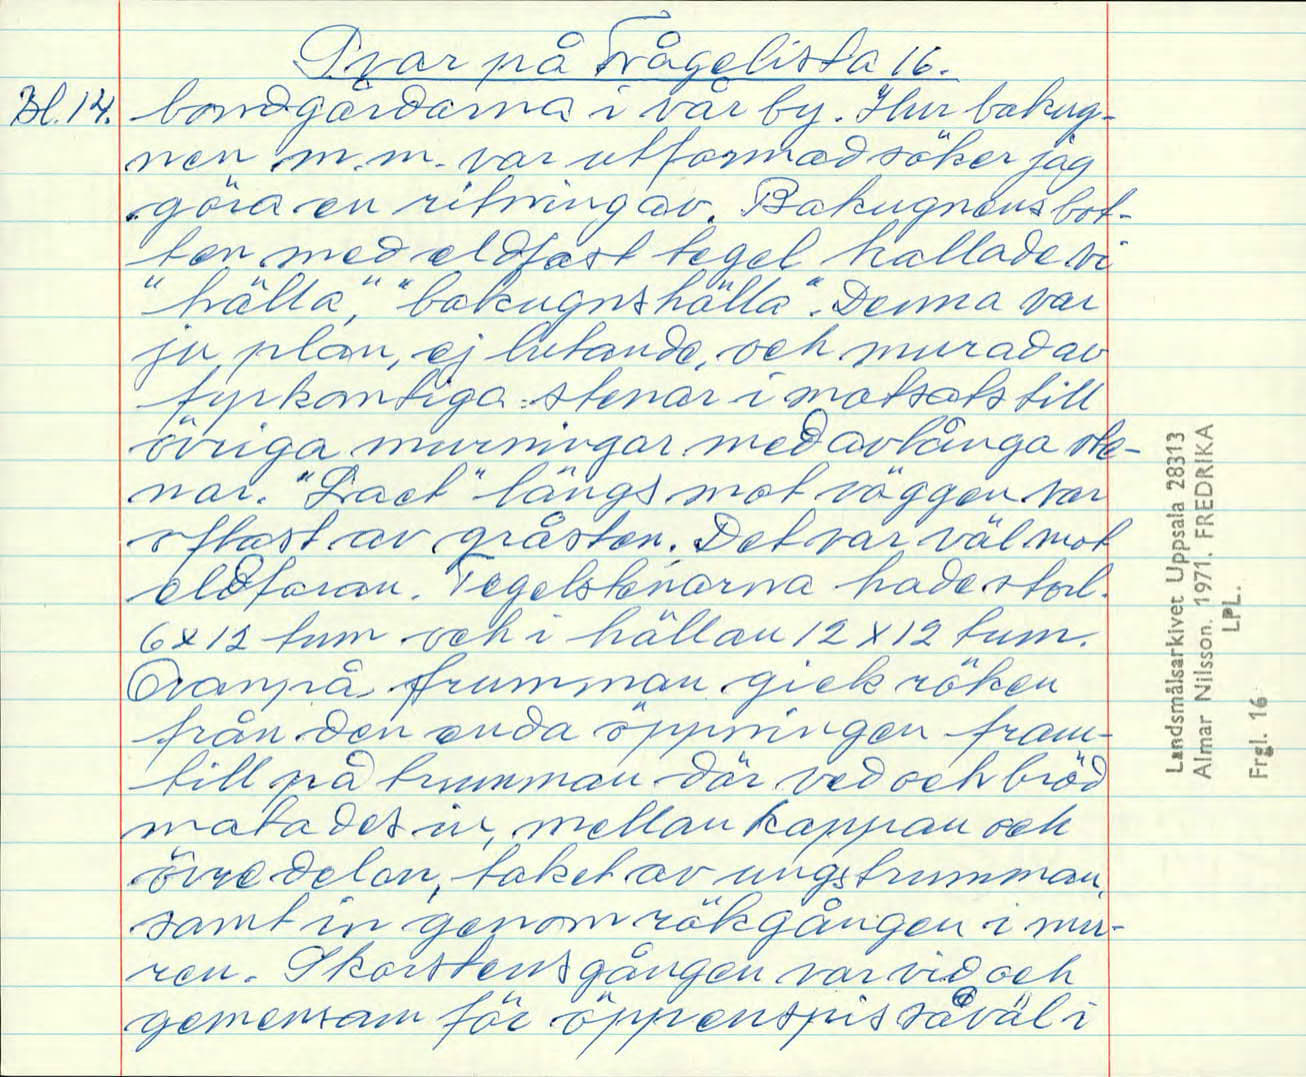 Svar på Frågelista 16.
Bl. 14. bondgårdarna i vår by. Hur bakug-
nen m.m. var utformad söker jag
göra en ritning av. Bakugnens bot-
ten med eldfast tegel kallade vi
"hälla", "bakugnshälla". Denna var
ju plan, ej lutande, och murad av
fyrkantiga stenar i motsats till
övriga murningar med avlånga ste-
nar. "Laet" längs mot väggen var
oftast av gråsten. Det var väl mot
eldfaran. Tegelstenarna hade storl.
6x12 tum och i hällan 12x12 tum.
Ovanpå trumman gick röken
från den enda öppningen fram-
till på trumman där ved och bröd
matades in, mellan kappan och
övre delen, taket av ungstrumman,
samt in genom rökgången i mu-
ren. Skorstensgången var vid och
gemensam för öppenspis såväl i
Landsmålsarkivet Uppsala 28313
Almar Nilsson. 1971. FREDRIKA
LPL.
Frgl. 16